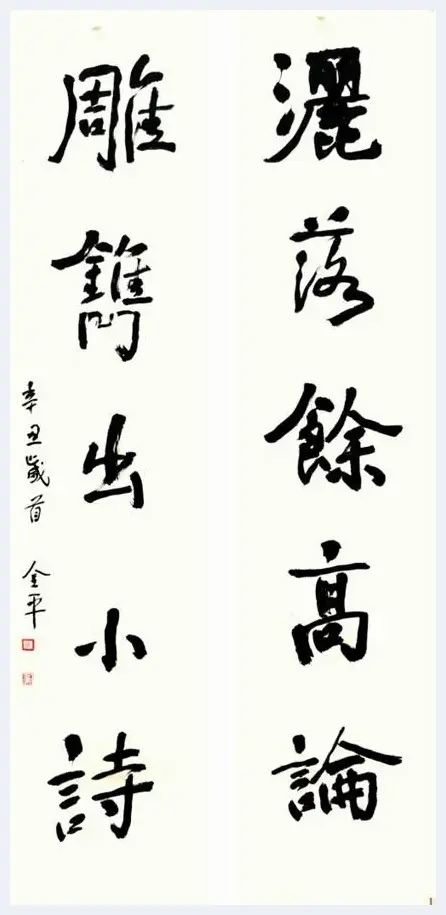 灑落餘高論
雕鐫出小詩
辛丑歲首 金平